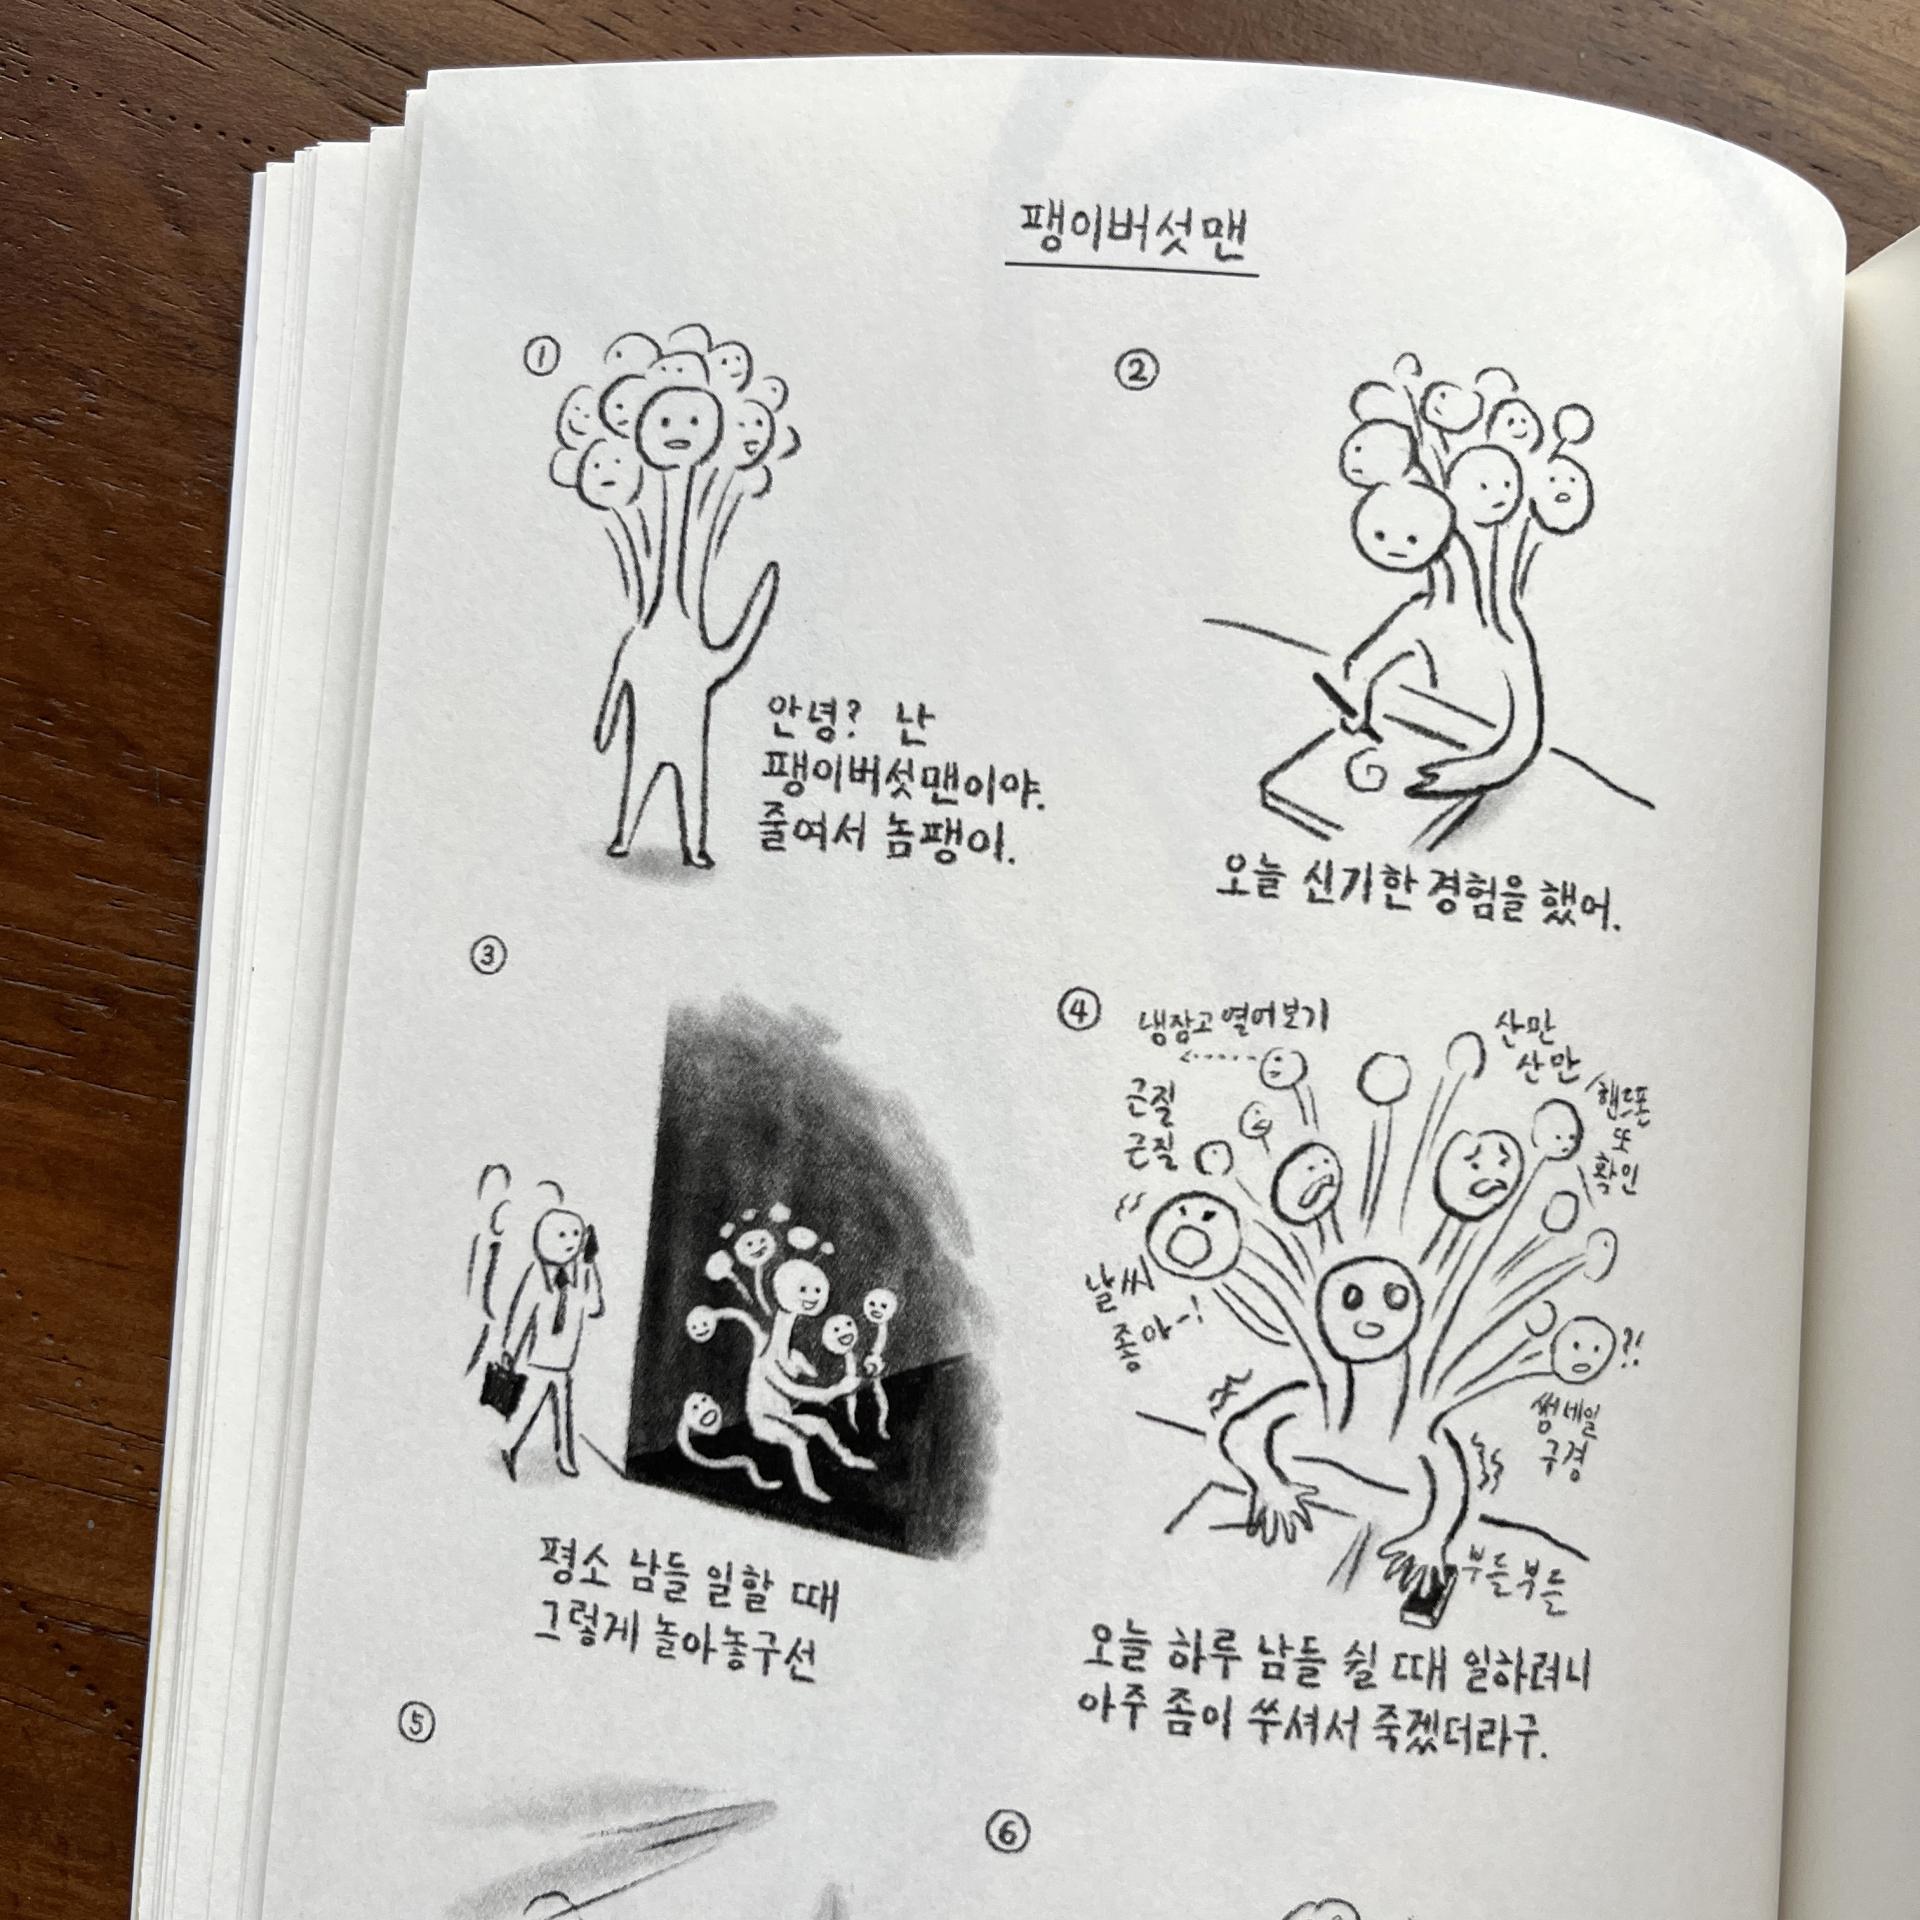 팽이버섯맨
①
안녕? 난
팽이버섯맨이야.
줄여서 놈팽이.
②
오늘 신기한 경험을 했어.
③
평소 남들 일할 때
그렇게 놀아놓구선
④
냉장고 열어보기
산만
산만
핸드폰
또
확인
근질
근질
날씨
좋아~!
?!
썸세일
구경
부들부들
오늘 하루 남들 쉴 때 일하려니
아주 좀이 쑤셔서 죽겠더라구.
⑤
⑥